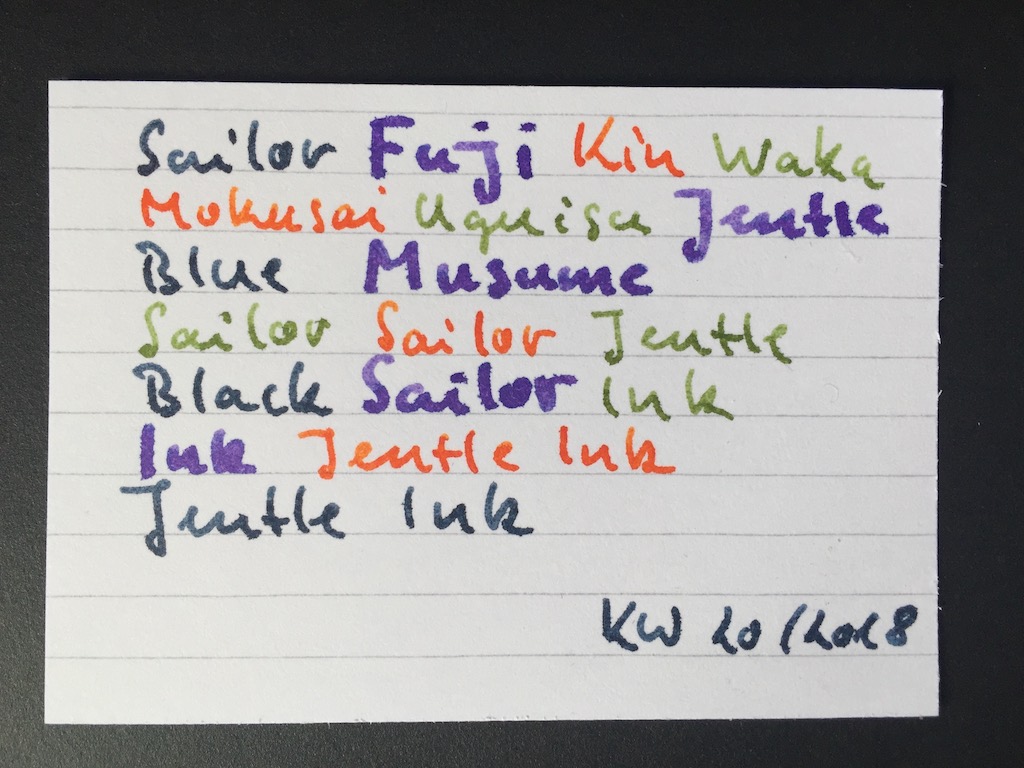 Sailor Fuji Kin Waka
Mokusai Uguisu Jentle
Blue Musume
Sailor Sailor Jentle
Black Sailor Ink
Ink Jentle Ink
Jentle Ink
KW 20/2018